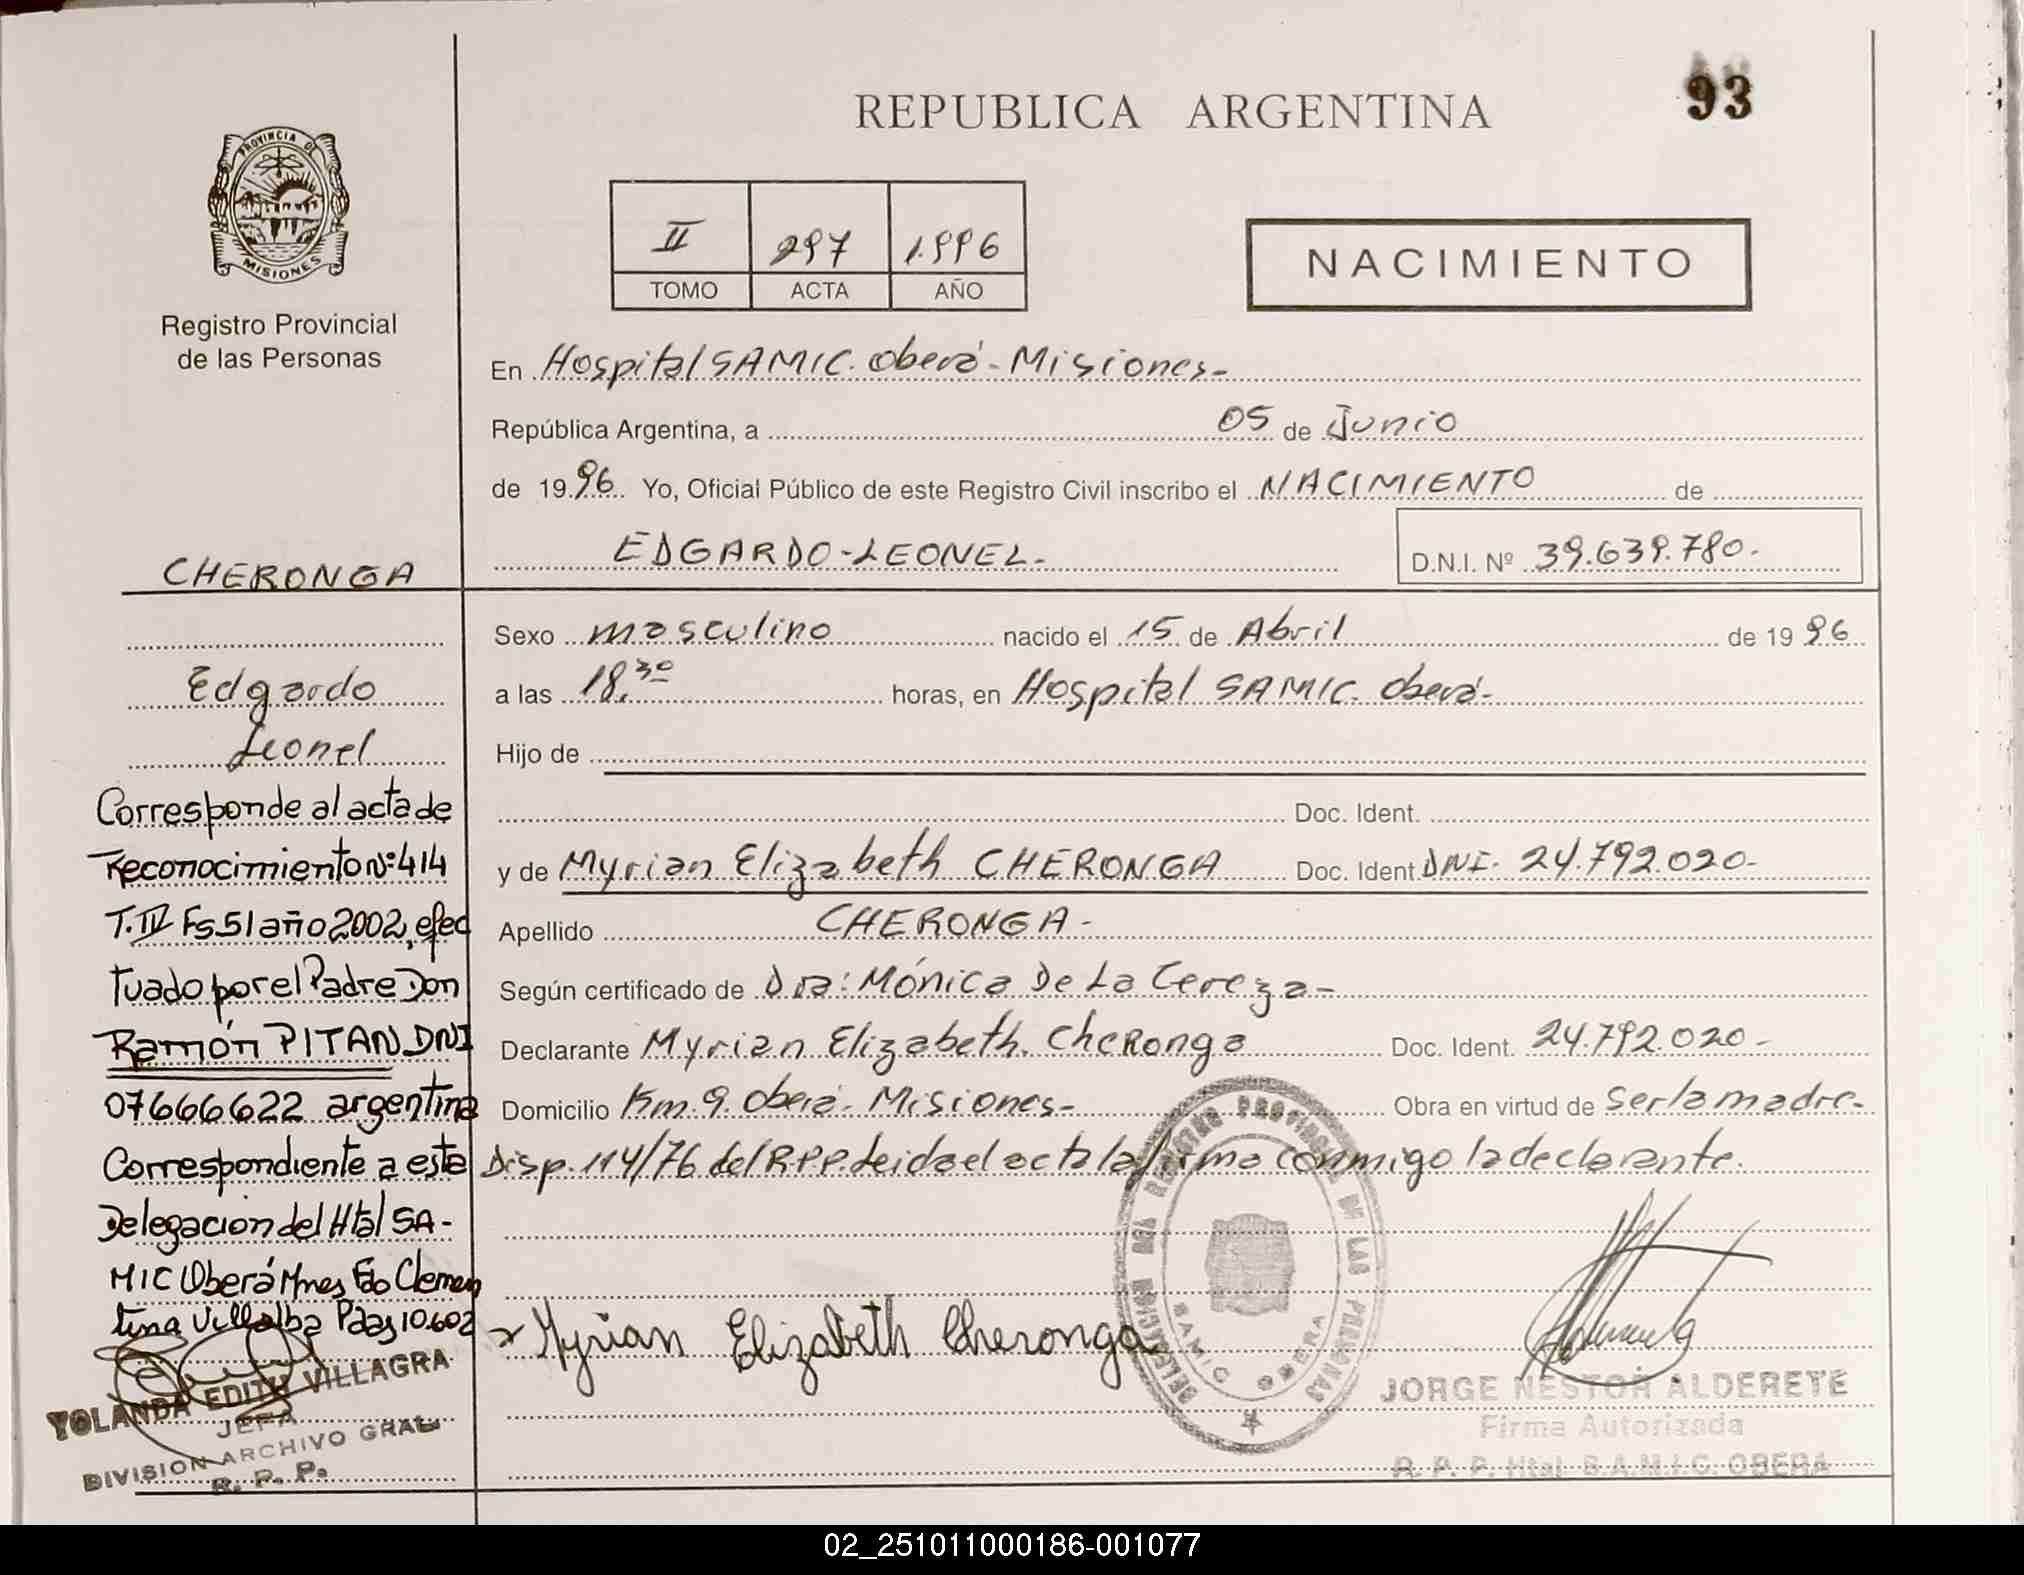 REPUBLICA ARGENTINA
93
PROVINCIA DE
MISIONES
Registro Provincial
de las Personas
II 297 1.996
TOMO ACTA AÑO
NACIMIENTO
En Hospital SAMIC. Oberá - Misiones-
República Argentina, a 05 de Junio
de 1996 Yo, Oficial Público de este Registro Civil inscribo el NACIMIENTO de
EDGARDO-LEONEL- D.N.I. Nº 39.639.780-
Sexo masculino nacido el 15 de Abril de 1996
a las 18.30 horas, en Hospital SAMIC. Oberá-
Hijo de
Doc. Ident.
y de Myrian Elizabeth CHERONGA Doc. Ident. DNI- 24.792.020-
Apellido CHERONGA-
Según certificado de Dra: Mónica De La Cereza-
Declarante Myrian Elizabeth. Cheronga Doc. Ident. 24.792.020-
Domicilio Km. 9. Oberá- Misiones- Obra en virtud de Ser la madre-
Disp. 114/76. del R.P.P. Leida el acta la firma conmigo la declarante.
Myrian Elizabeth Cheronga
DELEGACION DEL REGISTRO PROVINCIAL DE LAS PERSONAS
SAMIC OBERA
JORGE NESTOR ALDERETE
Firma Autorizada
R. P. P. Htal S.A.M.I.C. OBERA
CHERONGA
Edgardo
Leonel
Corresponde al acta de
Reconocimiento Nº 414
T. IV Fs. 51 año 2002, efec
tuado por el Padre Don
Ramón PITAN DNI
07666622 argentina
Correspondiente a esta
Delegación del Htal SA-
MIC Oberá Mnes Fdo Clemen
tina Villalba Pdas 10.602
YOLANDA EDITH VILLAGRA
JEFA
DIVISION ARCHIVO GRAL
R. P. P.
02_251011000186-001077